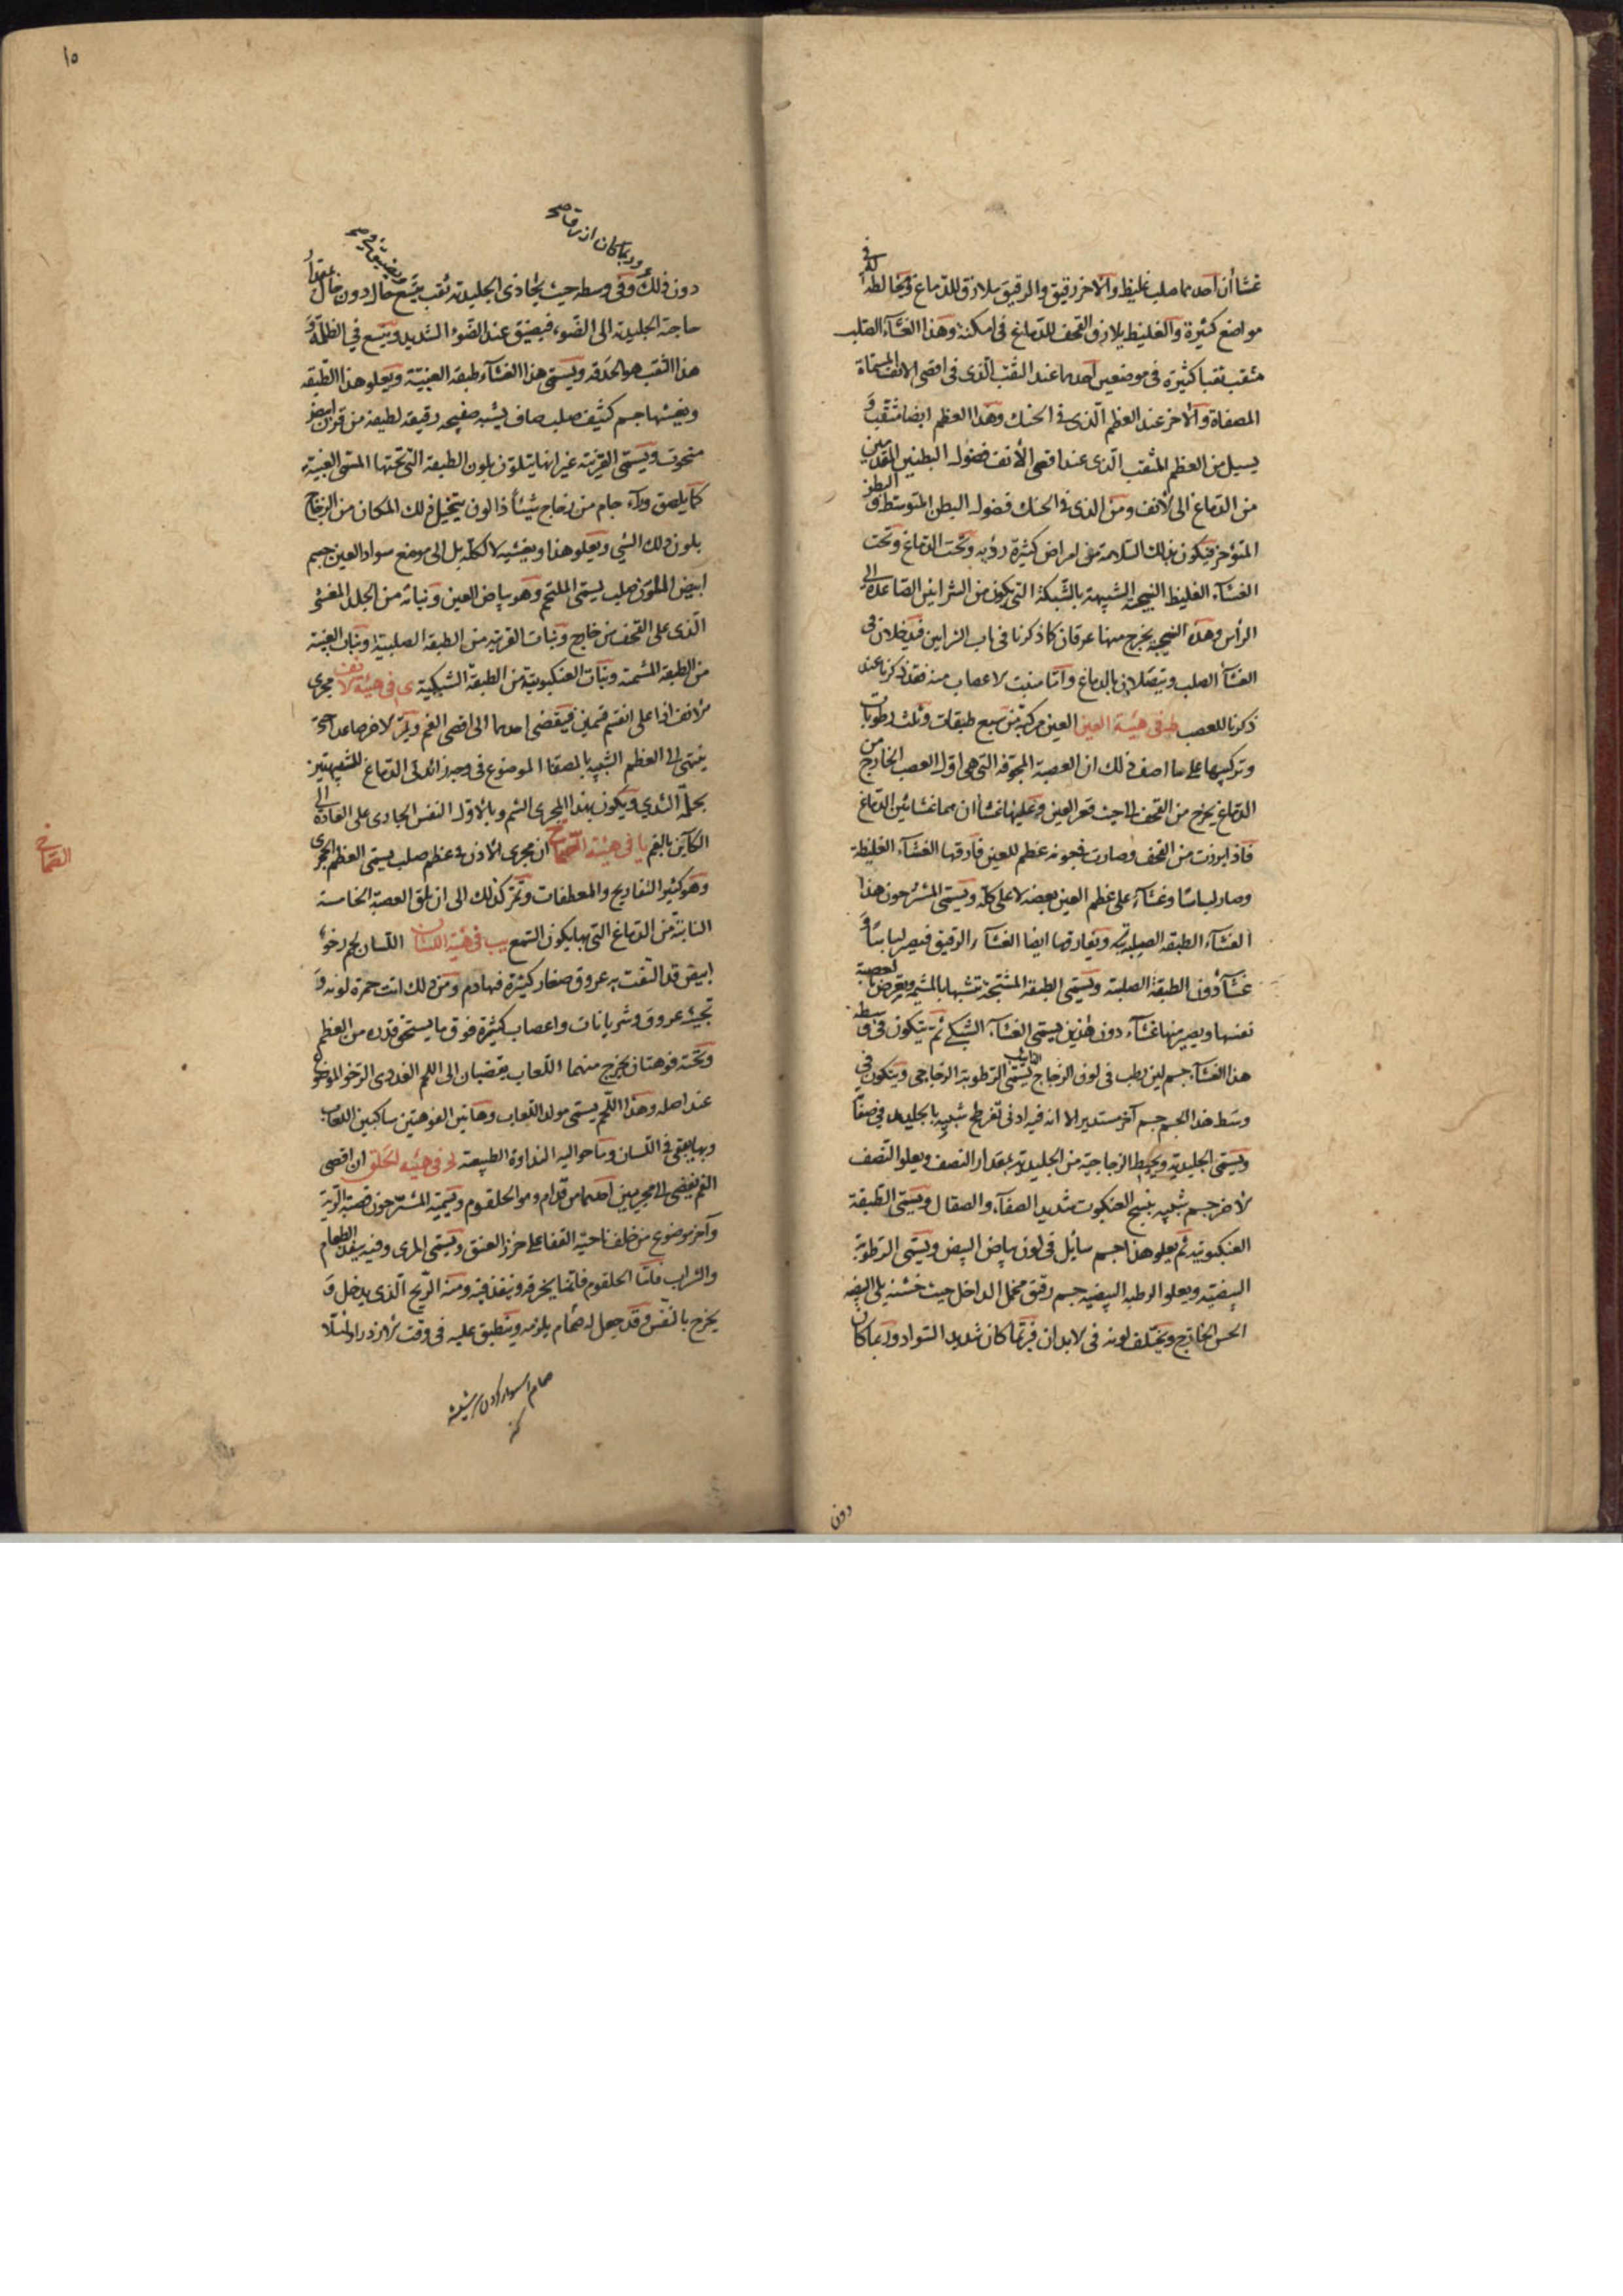 غشاآن احدهما صلب غليظ والاخر رقيق والرقيق ملازق للدماغ ومخالط له في
مواضع كثيرة والغليظ يلازق القحف للدماغ في امكنة وهذا الغشآء الصلب
مثقب ثقبا كثيرة في موضعين احدهما عند الثقب الذى في اقصى الانف المسماة
المصفاة والاخر عند العظم الذى في الحنك وهذا العظم ايضا مثقب و
يسيل من العظم المثقب الذى عند اقصى الأنف فضول البطنين المقدمين
من الدماغ الى الأنف ومن الذى في الحنك فضول البطن المتوسط والبطن
المؤخر فيكون بذلك السلامة من امراض كثيرة ردية وتحت الدماغ وتحت
الغشآء الغليظ النسيجة الشبيهة بالشبكة التى يكون من الشرايين الصاعدة الى
الرأس وهذه النسيجة يخرج منها عرقان كما ذكرنا في باب الشرايين فيدخلان في
الغشآ الصلب ويتصلان بالدماغ واما منبت الاعصاب منه فقد ذكرنا عند
ذكرنا للعصب ط في هيئة العين العين مركبة من سبع طبقات وثلث رطوبات
وتركيبها على ما اصف ذلك ان العصبة المجوفة التى هى اول العصب الخارج من
الدماغ يخرج من القحف الى حيث قعر العين وعليها غشاآن هما غشائين الدماغ
فاذا برزت من القحف وصارت في جوبة عظم للعين فارقها الغشآء الغليظة
وصار لباسا وغشآء على عظم العين بعضه لا على كله ويسمى المشرحون هذا
الغشآء الطبقة الصلبة ويفارقها ايضا الغشآء الرقيق فيصير لباسا و
غشآء دون الطبقة الصلبة ويسمى الطبقة المشيمة تشبها بالمشيمة ويعرض العصبة
نفسها ويصير منها غشآء دون هذين يسمى الغشآء الشبكى ثم يتكون في وسطه
هذا الغشآء جسم لين رطب في لون الزجاج الذائب يسمى الرطوبة الزجاجى ويتكون في
وسط هذا الجسم جسم آخر مستدير الا انه فيه ادنى تفرطح شبيه بالجليد في صفا
ويسمى الجليدية ويحيط الزجاجية من الجليدية بمقدار النصف ويعلو النصف
الاخر جسم شبيه بنسج العنكبوت شديد الصفآء والصقال ويسمى الطبقة
العنكبوتية ثم يعلو هذا جسم سايل في لون بياض البيض ويسمى الرطوبة
البيضية ويعلو الرطبة البيضية جسم رقيق مخمل الداخل حيث يلى البيضه
الخارج ويختلف لونه في الابدان فربما كان شديد السواد وربما كان
دون
١٥
وربما كان ازرق صح
دون ذلك وفى وسطه حيث يحاذى الجليدية ثقب يتسع حال دون حال بمقدار
حاجة الجليدية الى الضوء فيضيق عند الضوء الشديد ويتسع في الظلمة و
هذا الثقب هو الحدقه ويسمى هذا الغشآء طبقة العنبية ويعلو هذا الطبقه
ويغشها جسم كثيف صلب صاف يشبه صفيحه رقيقة لطيفة من قرن ابيض
منحوت ويسمى القرنية غير انها يتلون بلون الطبقة التى تحتها المسمى العنبية
كما يلصق ورآء جام من زجاج شيئا ذا لون يتخيل ذلك المكان من الزجاج
بلون ذلك الشى ويعلو هذا ويغشيه لا كله بل الى موضع سواد العين جسم
ابيض اللون صلب يسمى الملتحم وهو بياض العين ونباته من الجلد المغشى
الذى على القحف من خارج ونبات القرنية من الطبقة الصلبية ونبات العنبية
من الطبقة المشيمة ونبات العنكبوتية من الطبقة الشبكية ى في هيئة الانف مجرى
الانف اذا على انقسم قسمين فيفضى احدهما الى اقصى الفم ويمر الاخر صاعدا حتى
ينتهى الى العظم الشبيه بالمصفا الموضوع في وجه زائدتى الدماغ للشبيهتين
بحلمة الثدى ويكون بهذا المجرى الشم وبالأول النفس الجارى على العادة الى
الكائن بالفم يا في هيئة الصماخ ان مجرى الأذن في عظم صلب يسمى العظم الحجرى
وهو كثير التعاريج والمعطفات ويمر كذلك الى ان يلقى العصبة الخامسة
النابتة من الدماغ التى بها يكون السمع يب في هيئة اللسان اللسان لحم رخو
ابيض قد التفت به عروق صغار كثيرة فيها دم ومن ذلك اتت حمرة لونه و
تحته عروق وشريانات واعصاب كثيرة فوق ما يستحق قدره من العظم
وتحته فوهتان يخرج منهما اللعاب يفضيان الى اللحم الغددى الرخو الموضوع
عند اصله وهذا اللحم يسمى مولد اللعاب وهاتين الفوهتين ساكبين اللعاب
وبها يبقى في اللسان وما حواليه النداوة الطبيعة يج في هيئة الحلق ان اقصى
الفم يفضى الى مجريين احدهما من قدام وهو الحلقوم ويسميه المشرحون قصبة الرية
وآخر موضوع من خلف ناحية القفا على خرز العنق ويسمى المرى وفيه ينفذ الطعام
والشراب فاما الحلقوم فانما يخرقه وينفذ فيه ومنه الريح الذى يدخل و
يخرج بالنفس وقد جعل له صمام يلزمه وينطبق عليه في وقت الازدراد لئلا
الصماخ